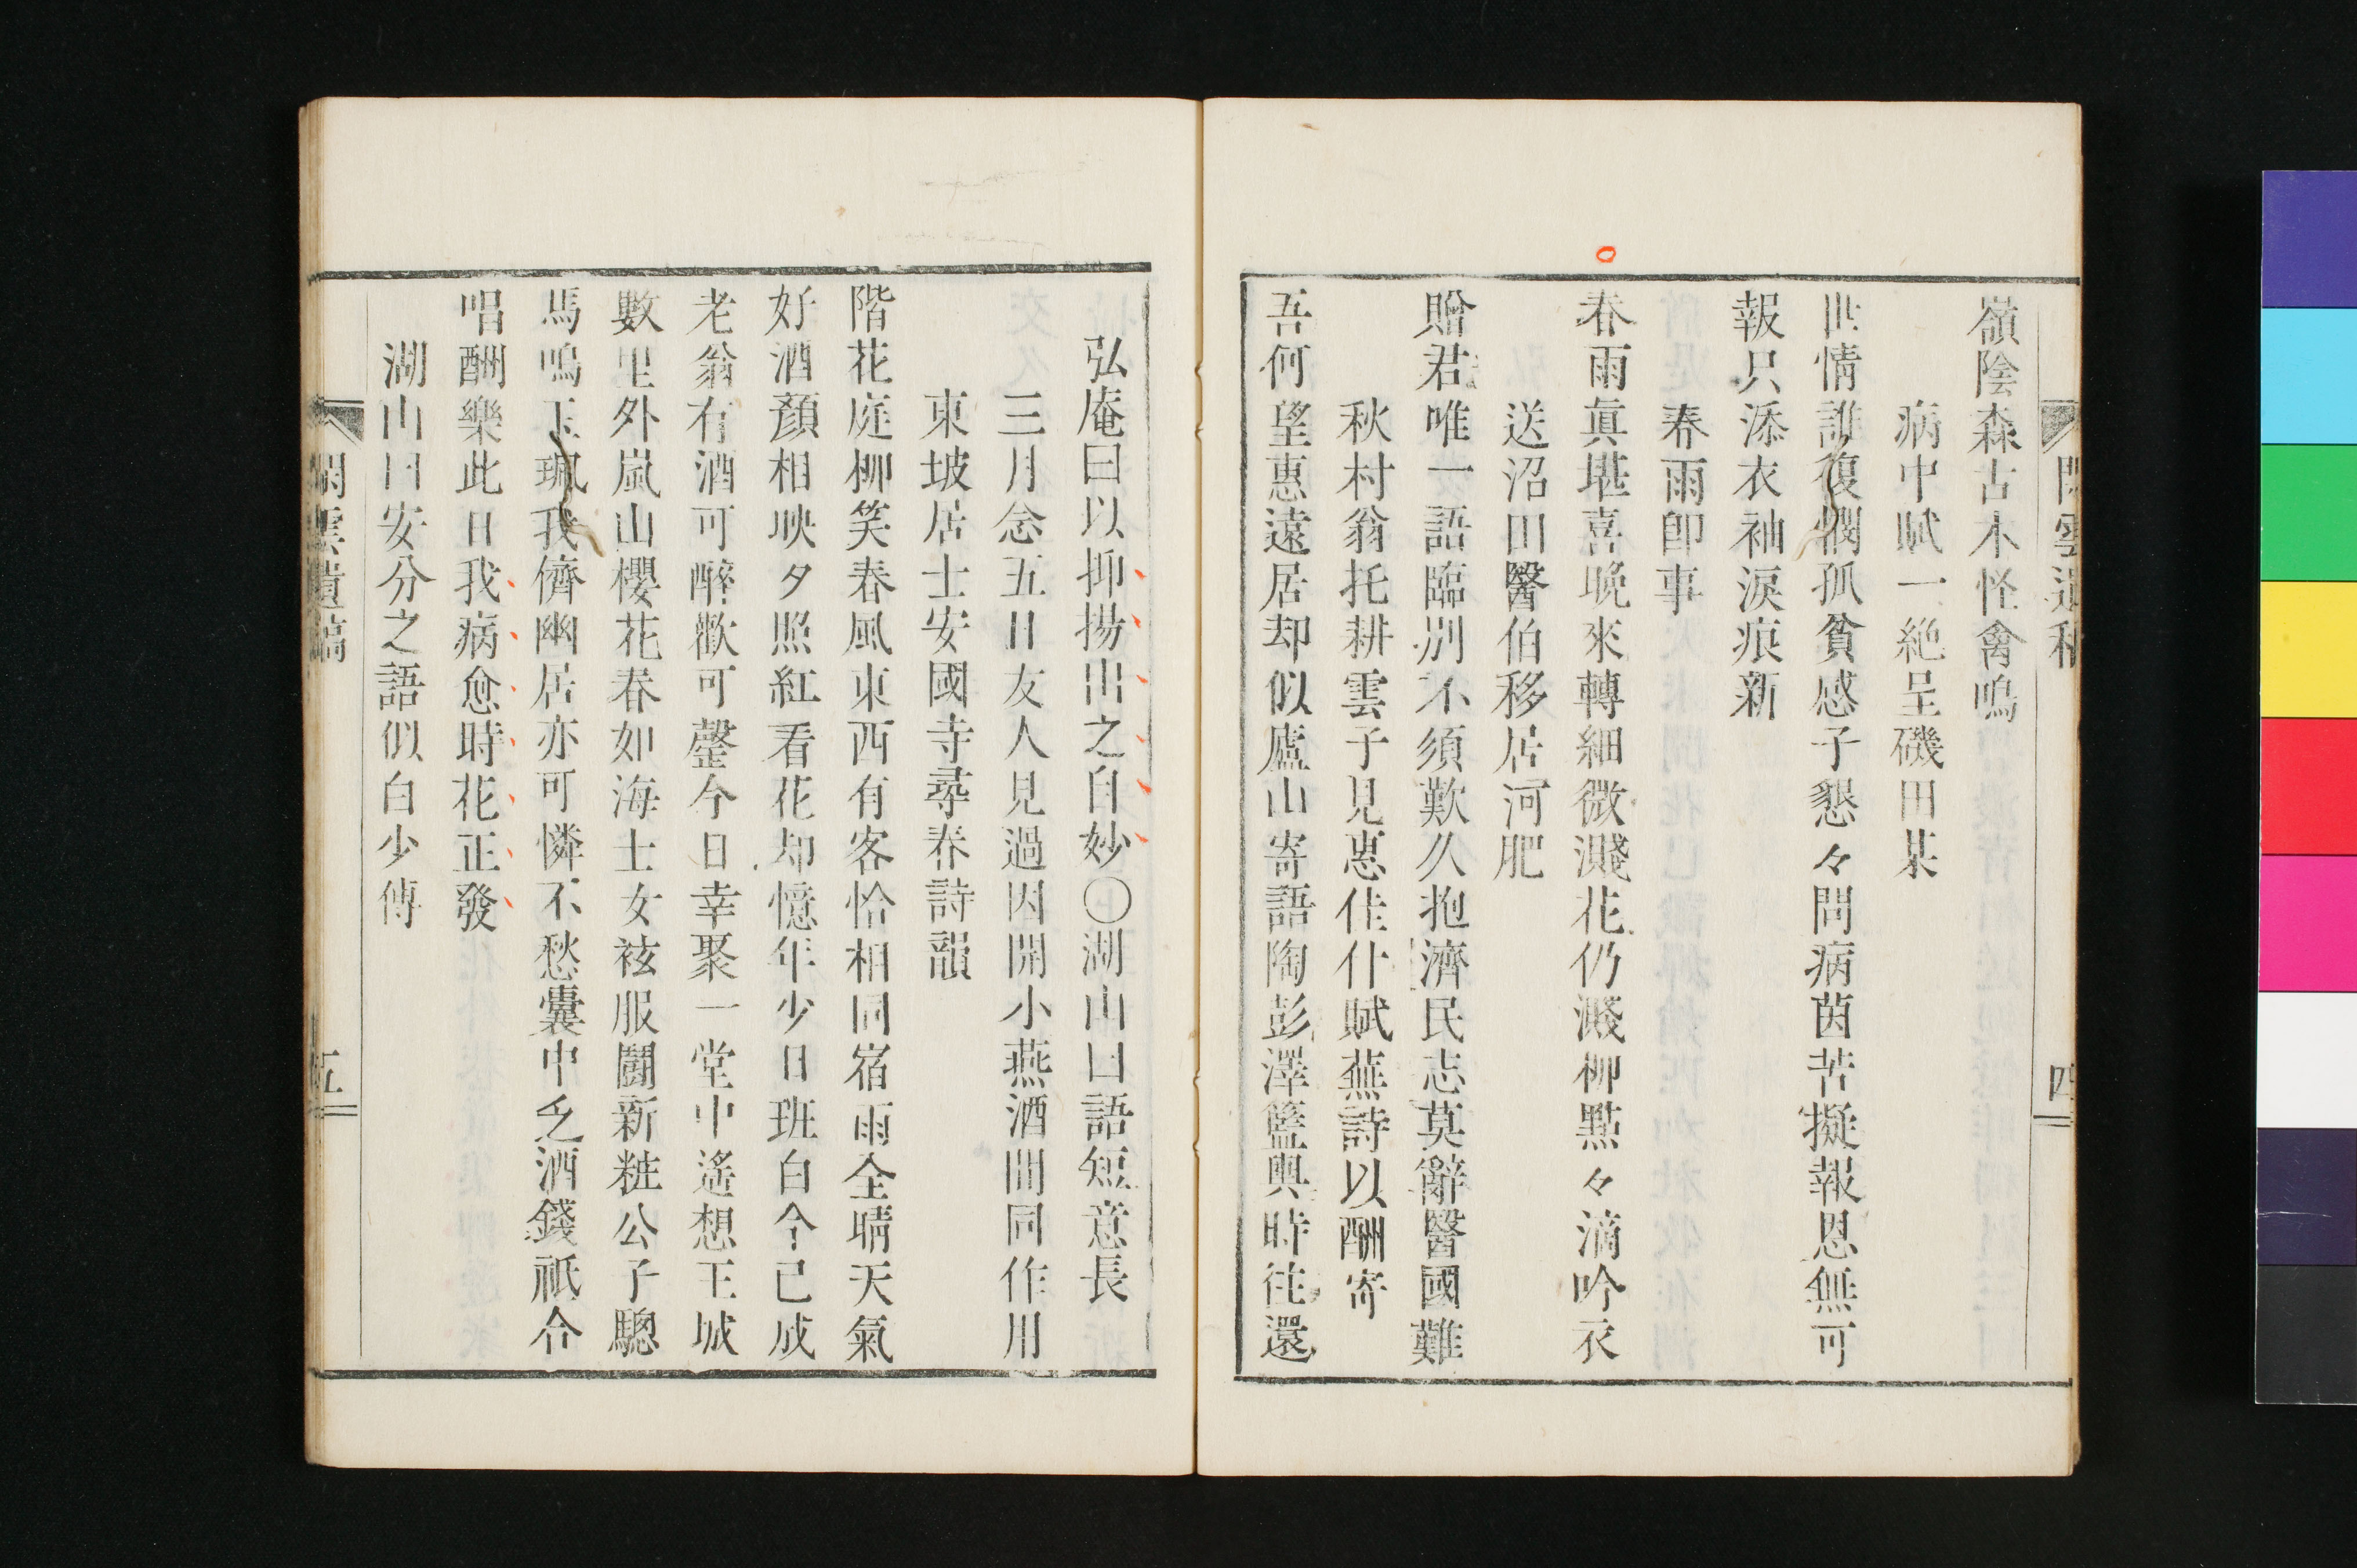 嶺陰森古木怪禽鳴
病中賦一絶呈磯田某
世情誰復憫孤貧感子懇々問病茵苦擬報恩無可
報只添衣袖涙痕新
春雨卽事
春雨眞堪喜晩來轉細微濺花仍濺柳點々滴吟衣
送沼田醫伯移居河肥
贈君唯一語臨別不須歎久抱濟民志莫辭醫國難
秋村翁托耕雲子見惠佳什賦蕪詩以酬寄
吾何望惠遠居却似廬山寄語陶彭澤籃輿時往還
四
弘庵曰以抑揚出之自妙〇湖山曰語短意長
三月念五日友人見過因開小燕酒間同作用
東坡居士安國寺尋春詩韻
階花庭柳笑春風東西有客恰相同宿雨全晴天氣
好酒顏相映夕照紅看花却憶年少日班白今已成
老翁有酒可醉歡可罄今日幸聚一堂中遙想王城
數里外嵐山櫻花春如海士女袨服鬪新粧公子驄
馬鳴玉珮我儕幽居亦可憐不愁囊中乏酒錢祇合
唱酬樂此日我病愈時花正發
湖山曰安分之語似白少傅
閑雲遺稿
五